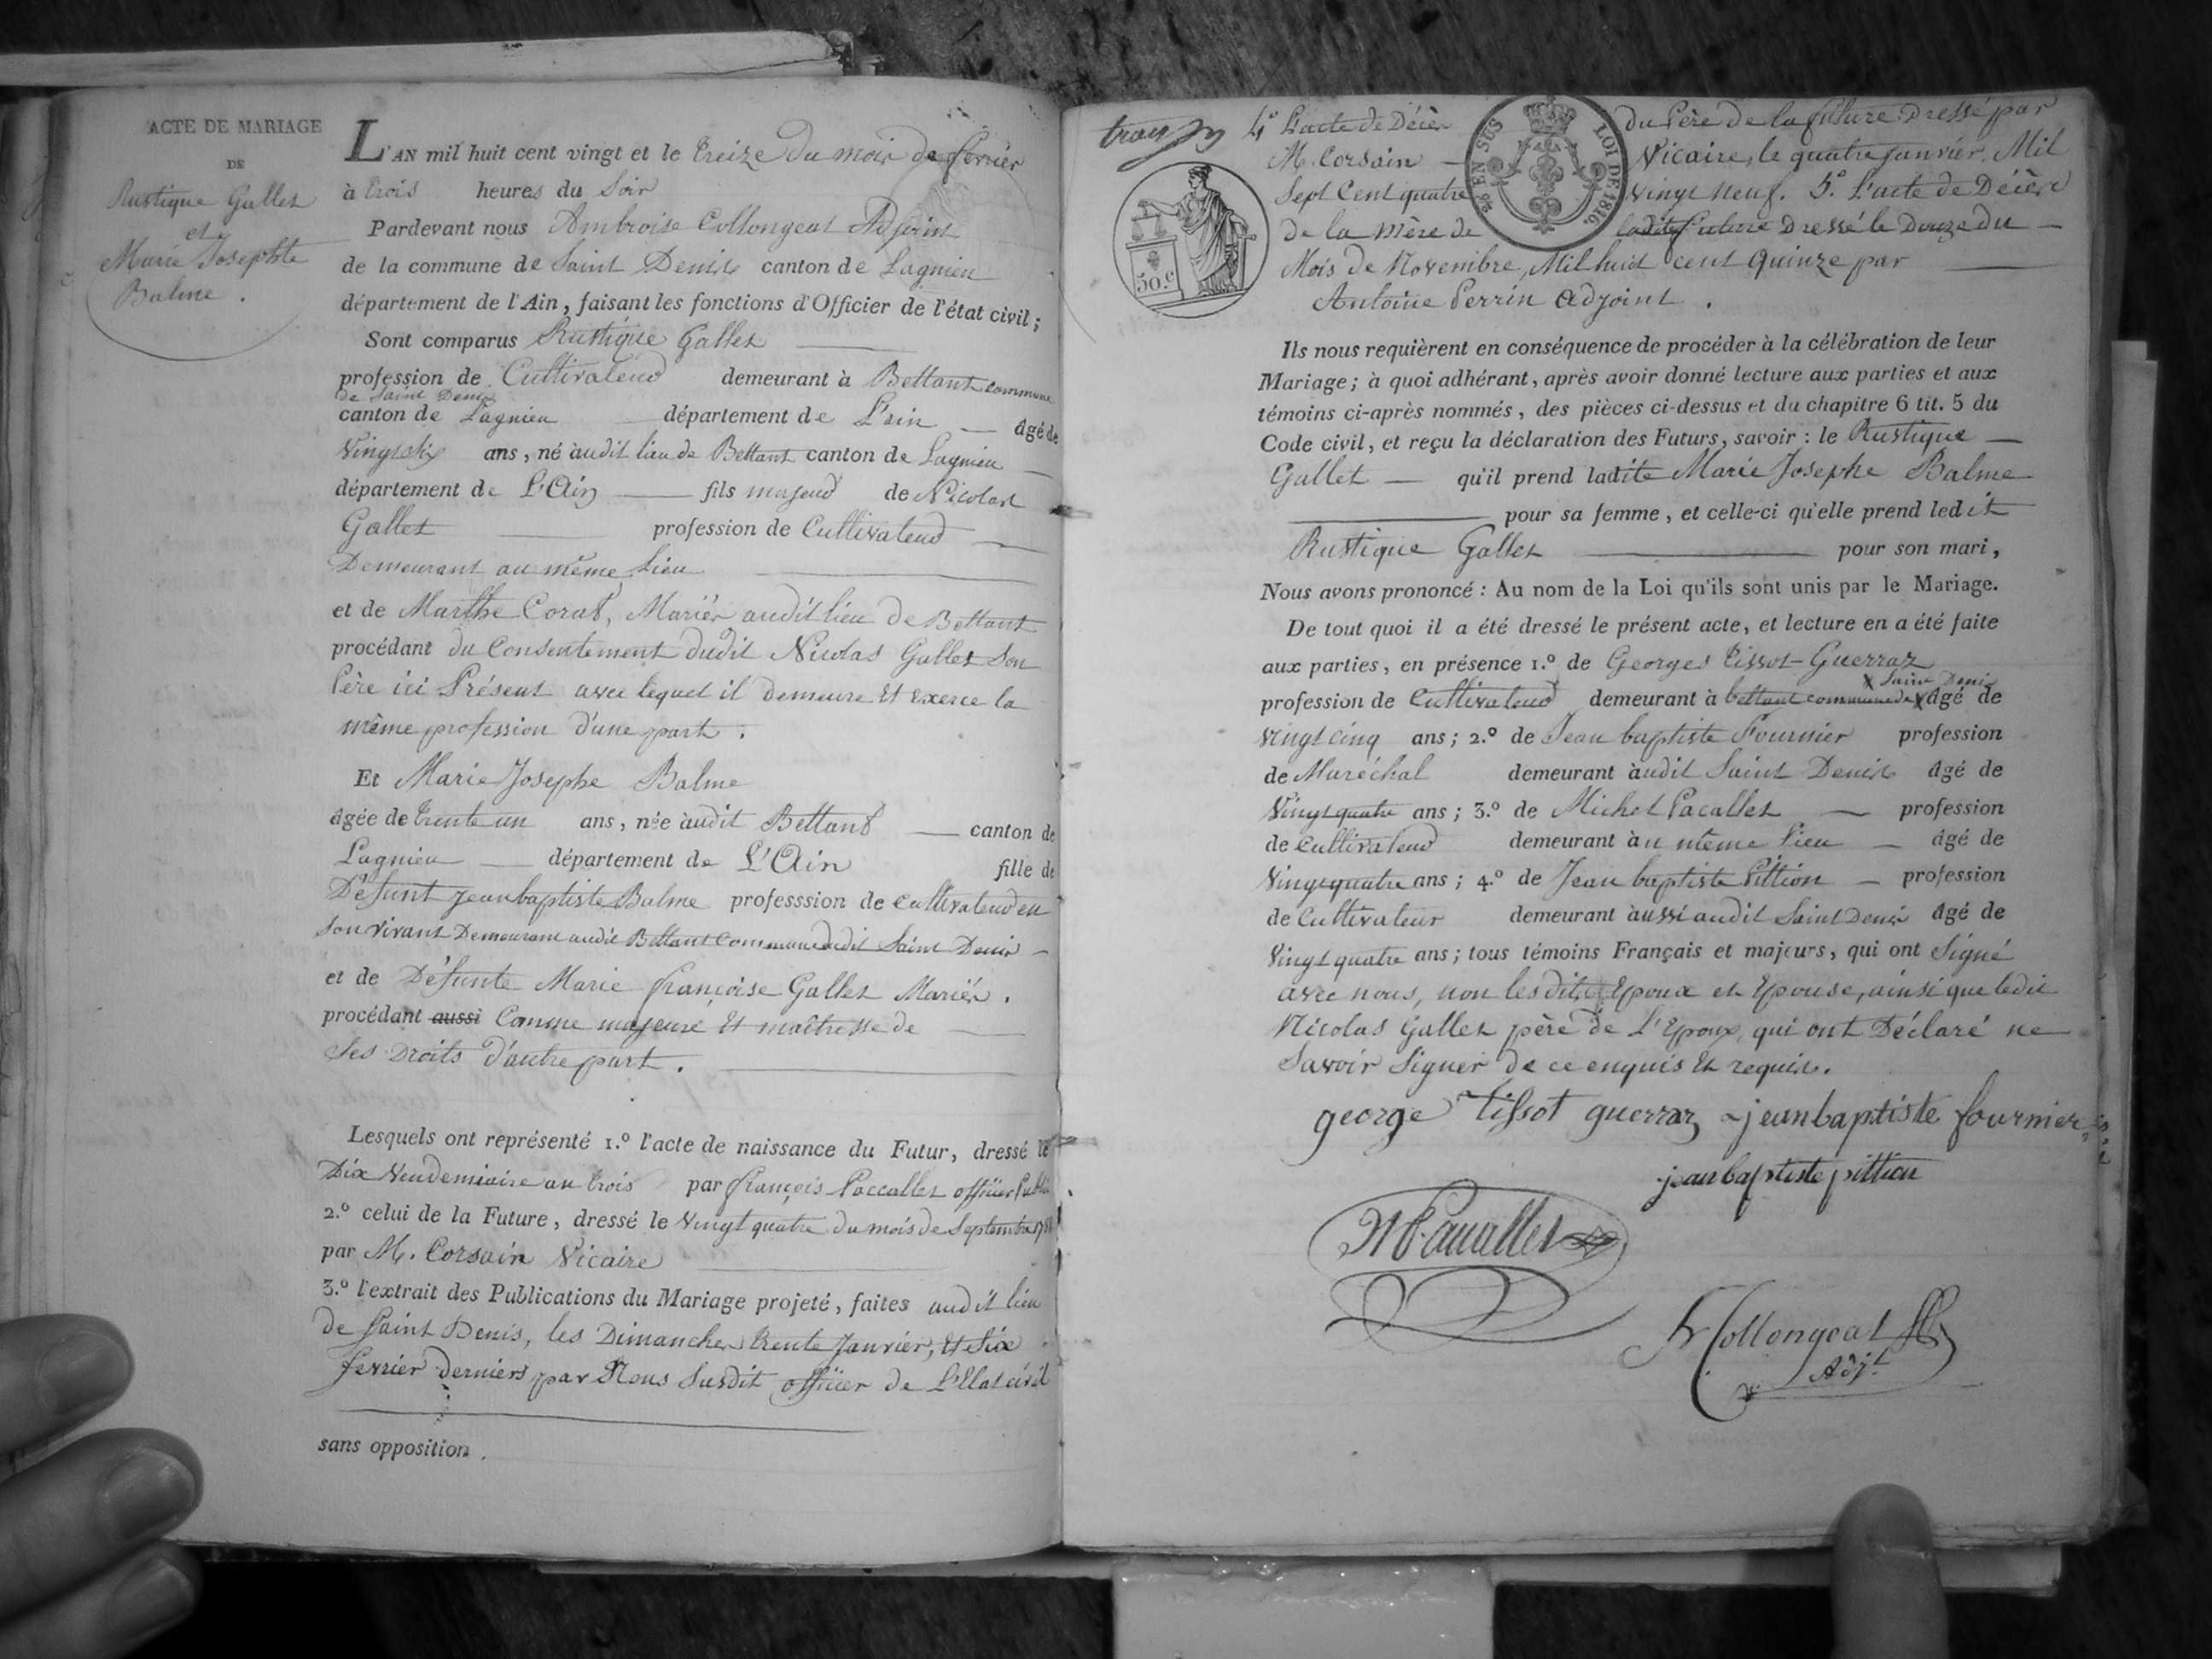 ACTE DE MARIAGE
DE
Rustique Gallet
et
Marie Josephte
Balme .
L'AN mil huit cent vingt et le treize du mois de fevrier
à trois heures du Soir
Pardevant nous Ambroise Collongeat Adjoint
de la commune de Saint Denis canton de Lagnieu
département de l'Ain, faisant les fonctions d'Officier de l'état civil ;
Sont comparus Rustique Gallet
profession de Cultivateur demeurant à Bettant commune
de Saint Denis
canton de Lagnieu département de L'ain âgé de
Vingt six ans, né àudit lieu de Bettant canton de Lagnieu
département de L'Ain fils majeur de Nicolas
Gallet profession de Cultivateur
Demeurant au même Lieu
et de Marthe Corat, Mariés audit lieu de Bettant
procédant du Consentement dudit Nicolas Gallet Son
Père ici Présent avec lequel il demeure Et Exerce la
même profession d'une part .
Et Marie Josephe Balme
âgée de trente un ans, née àudit Bettant canton de
Lagnieu département de L'Ain fille de
Défunt Jean baptiste Balme professsion de Cultivateur en
Son vivant Demeurant audit Bettant Commune dudit Saint Denis
et de Défunte Marie françoise Gallet Mariés .
procédant aussi Comme majeure Et maîtresse de
Ses Droits d'autre part .
Lesquels ont représenté 1.º l'acte de naissance du Futur, dressé le
Dix Vendemiaire an trois par françois Paccallet officier Public
2.º celui de la Future, dressé le Vingt quatre du mois de Septembre
par M. Corsain Vicaire
3.º l'extrait des Publications du Mariage projeté, faites audit lieu
de Saint Denis, les Dimanches trente Janvier, Et Six
fevrier derniers par Nous Susdit officier de L'Etat civil
sans opposition .
4º L'acte de Décès du Père de la future Dressé par
M. Corsain Vicaire, le quatre janvier, Mil
Sept Cent quatre Vingt Neuf. 5º L'acte de Décès
de la Mère de ladite future Dressé le Douze du
Mois de Novembre, Mil huit cent quinze par
Antoine Perrin adjoint .
26 EN SUS
LOI DE 1816.
50.c
Ils nous requièrent en conséquence de procéder à la célébration de leur
Mariage ; à quoi adhérant, après avoir donné lecture aux parties et aux
témoins ci-après nommés, des pièces ci-dessus et du chapitre 6 tit. 5 du
Code civil, et reçu la déclaration des Futurs, savoir : le Rustique
Gallet qu'il prend ladite Marie Josephe Balme
pour sa femme, et celle-ci qu'elle prend ledit
Rustique Gallet pour son mari,
Nous avons prononcé : Au nom de la Loi qu'ils sont unis par le Mariage.
De tout quoi il a été dressé le présent acte, et lecture en a été faite
aux parties, en présence 1.º de Georges Tissot-Guerraz
x Saint Denis
profession de Cultivateur demeurant à bettant commune de x âgé de
vingt cinq ans ; 2.º de Jean baptiste Fournier profession
de Maréchal demeurant àudit Saint Denis âgé de
Vingt quatre ans ; 3.º de Michel Pacallet profession
de Cultivateur demeurant àu même lieu âgé de
Vingt quatre ans ; 4.º de Jean baptiste Pittion profession
de Cultivateur demeurant àussi audit Saint Denis âgé de
Vingt quatre ans ; tous témoins Français et majeurs, qui ont Signé
avec nous, non lesdits Epoux et Epouse, ainsi que ledit
Nicolas Gallet père de L'Epoux, qui ont Déclaré ne
Savoir Signer de ce enquis Et requis.
george Tissot guerraz jeanbaptiste fournier
jeanbaptiste pittion
Collongeat
Adj.t